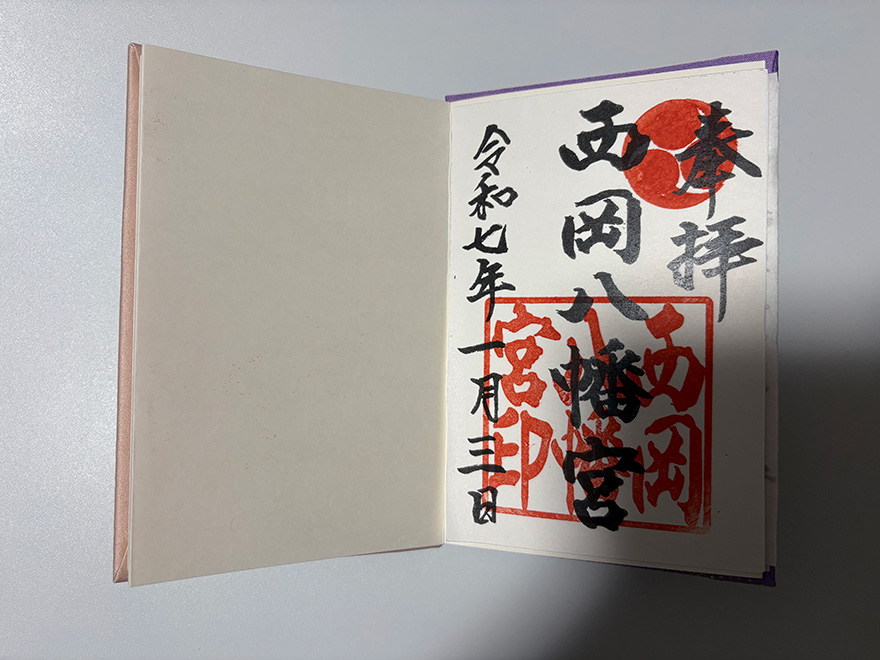 奉拝
西岡八幡宮
令和七年一月三日
西岡
八幡
宮印